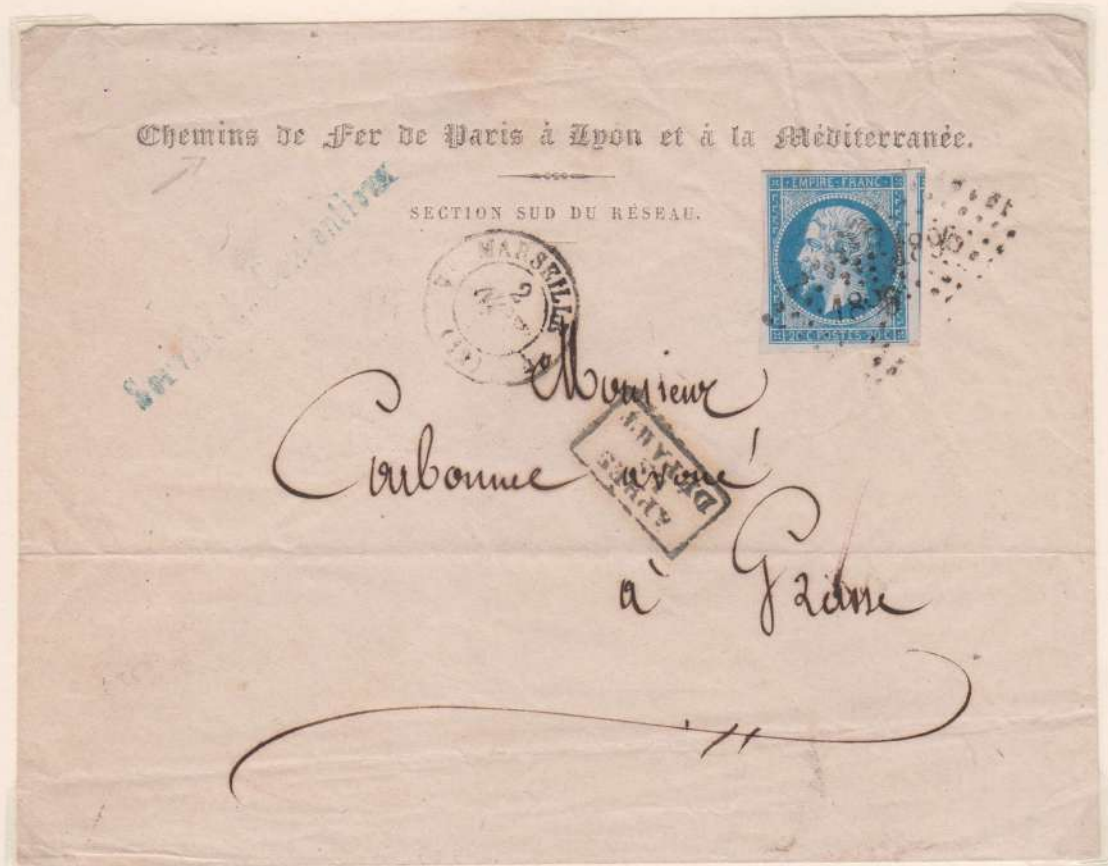 Chemins de Fer de Paris à Lyon et à la Méditerranée.
SECTION SUD DU RÉSEAU.
Contentieux
MARSEILLE
2
(12)
EMPIRE FRANC
20 C. POSTES 20 C
1896
1896
Monsieur
Carbonnel avoué
à Grasse
APRÈS
LE
DÉPART